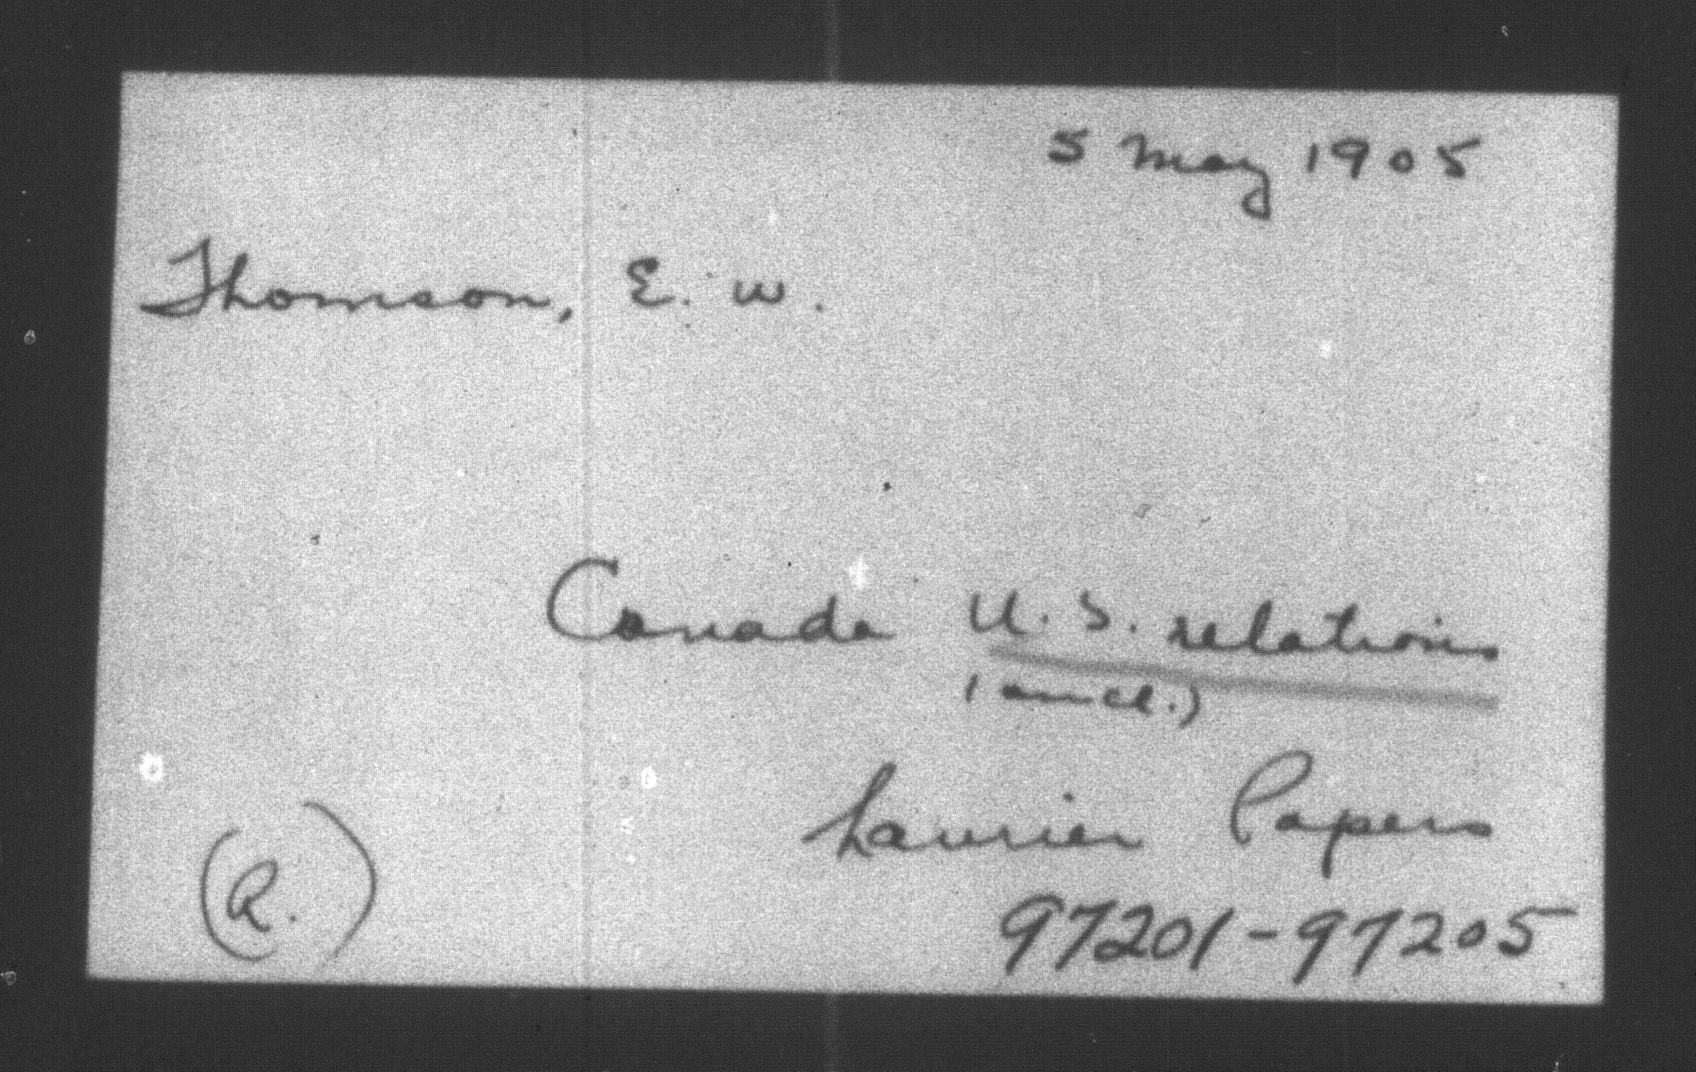 5 May 1905
Thomson, E. W.
Canada U.S. relations
Laurier Papers
(R.)
97201-97205